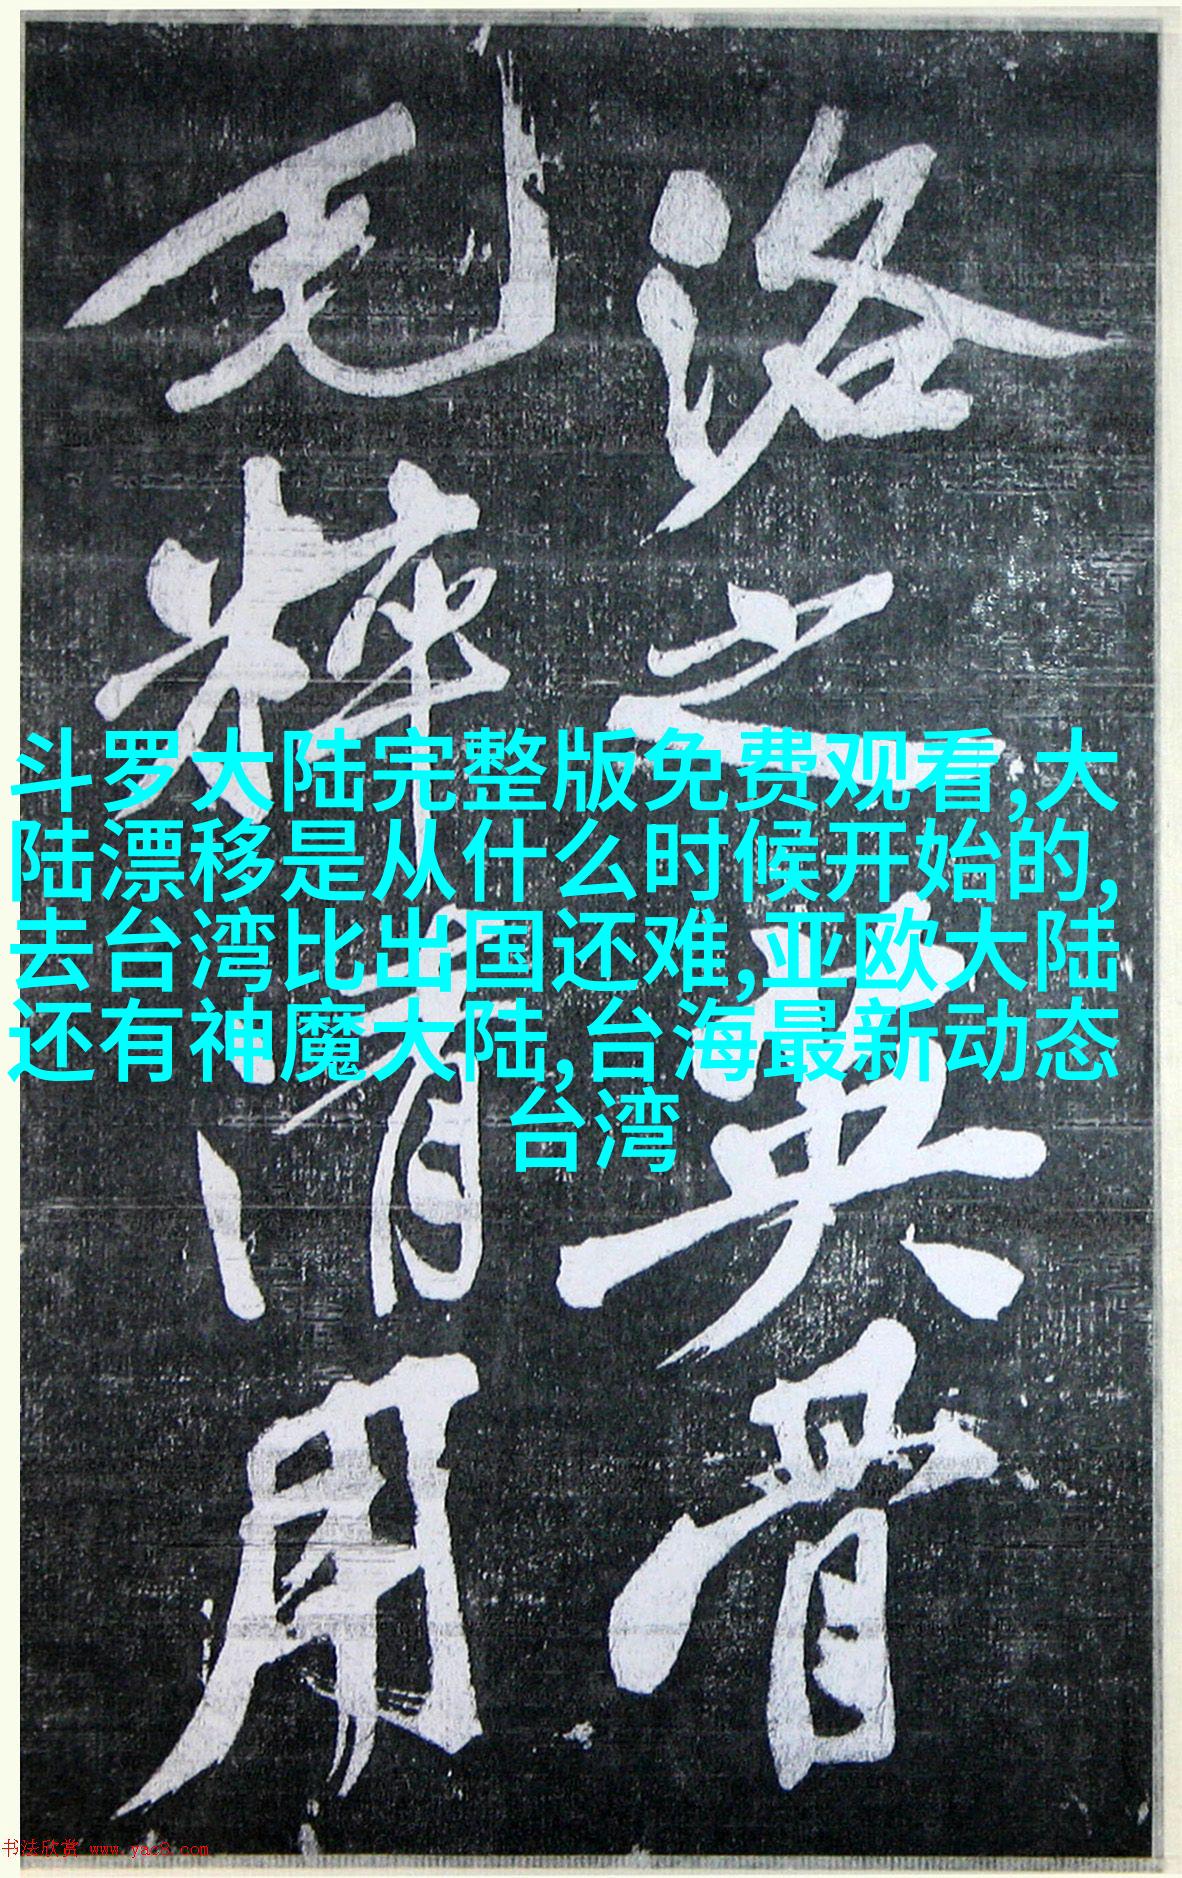 洛之英骨
毛粹清用
斗罗大陆完整版免费观看,大
陆漂移是从什么时候开始的,
去台湾比出国还难,亚欧大陆
还有神魔大陆,台海最新动态
台湾
书法欣赏 www.yac8.com